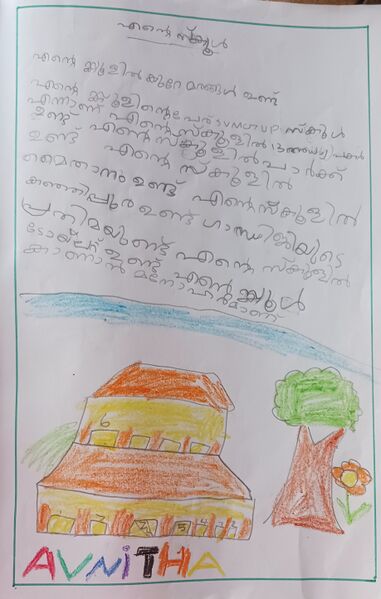 എന്റെ സ്കൂൾ
എന്റെ സ്കൂളിൽ കുറേ മരങ്ങൾ ഉണ്ട്
എന്റെ സ്കൂളിന്റെ പേര് SVMGTUP സ്കൂൾ
എന്നാണ് എന്റെ സ്കൂളിൽ 13 അദ്ധ്യാപകർ
ഉണ്ട് എന്റെ സ്കൂളിൽ പാർക്ക്
ഉണ്ട് എന്റെ സ്കൂളിൽ
മൈതാനം ഉണ്ട് എന്റെ സ്കൂളിൽ
കഞ്ഞിപ്പുര ഉണ്ട് ഗാന്ധിജിയുടെ
പ്രതിമയുണ്ട് എന്റെ സ്കൂളിൽ
ടോയ്ലറ്റ് ഉണ്ട് എന്റെ സ്കൂൾ
കാണാൻ മനോഹരമാണ്
6
1 2 5
AVNiTHA